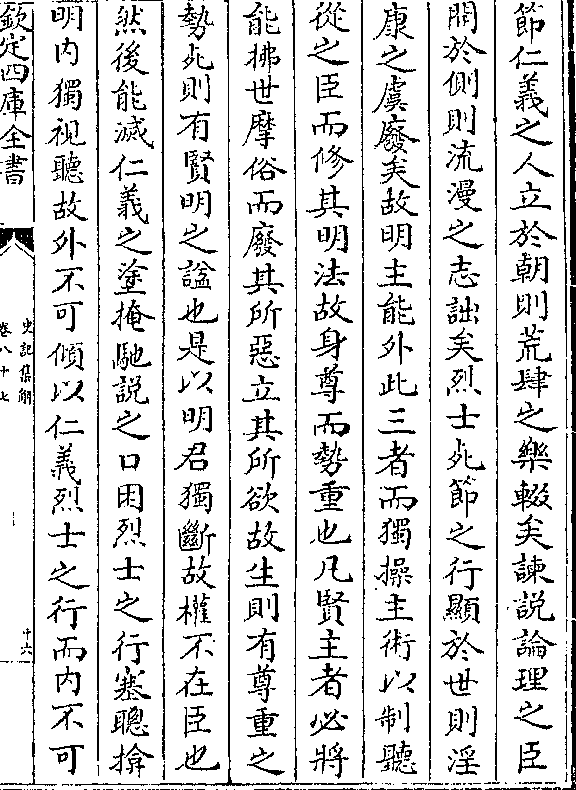 節仁義之人立於朝則荒肆之樂輟矣諫説論理之臣
間於側則流漫之志詘矣烈士死節之行顯於世則淫
康之虞廢矣故明主能外此三者而獨操主術以制聽
從之臣而修其明法故身尊而勢重也凡賢主者必將
能拂世摩俗而廢其所惡立其所欲故生則有尊重之
勢死則有賢明之諡也是以明君獨斷故權不在臣也
然後能滅仁義之塗掩馳説之口困烈士之行塞聰揜
明内獨視聽故外不可傾以仁義烈士之行而内不可
欽定四庫全書
史記集解
卷八十七
十六